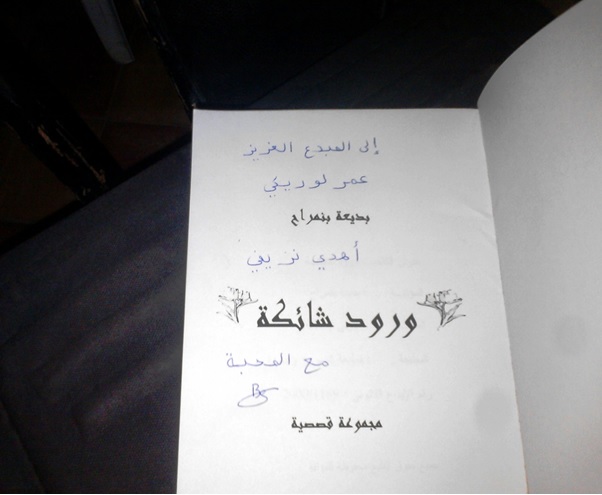 إلى المبدع العزيز
عمر لوريكي
بديعة بنمراح
أهدي نزيفي
ورود شائكة
مع المحبة
مجموعة قصصية